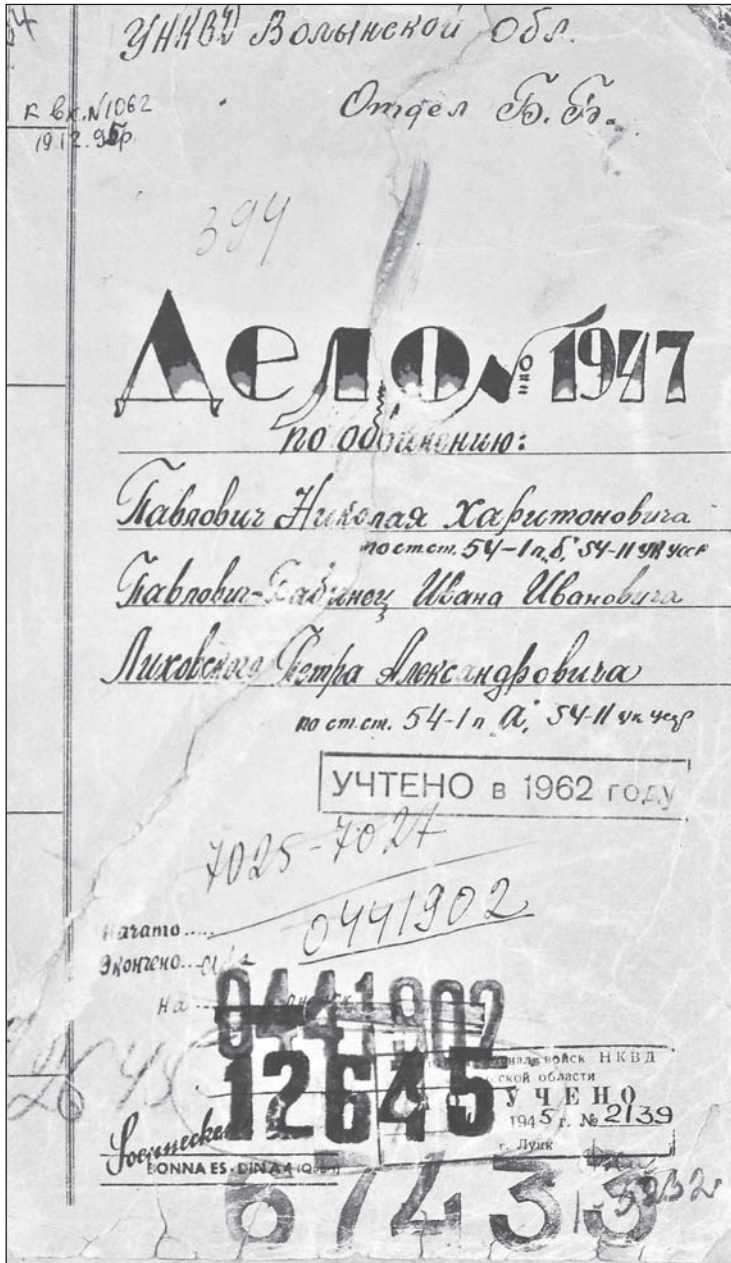 УНКВД Волынской Обл.
Отдел Б.Б.
к вх. N1062
19.12.95р.
394
Дело № 1947
по обвинению:
Павлович Николая Харитоновича
по ст.ст. 54-1 п „б“, 54-11 УК УССР
Павлович-Бабинец Ивана Ивановича
Лиховского Петра Александровича
по ст.ст. 54-1 п „а“, 54-11 ук усср
УЧТЕНО в 1962 году
7025-7027
начато
0441902
Экончено
на
0441902
войск НКВД
ской области
12645
УЧЕНО
1945 г. № 2139
г. Луцк
Soennecken
BONNA ES·DIN A 4
67433